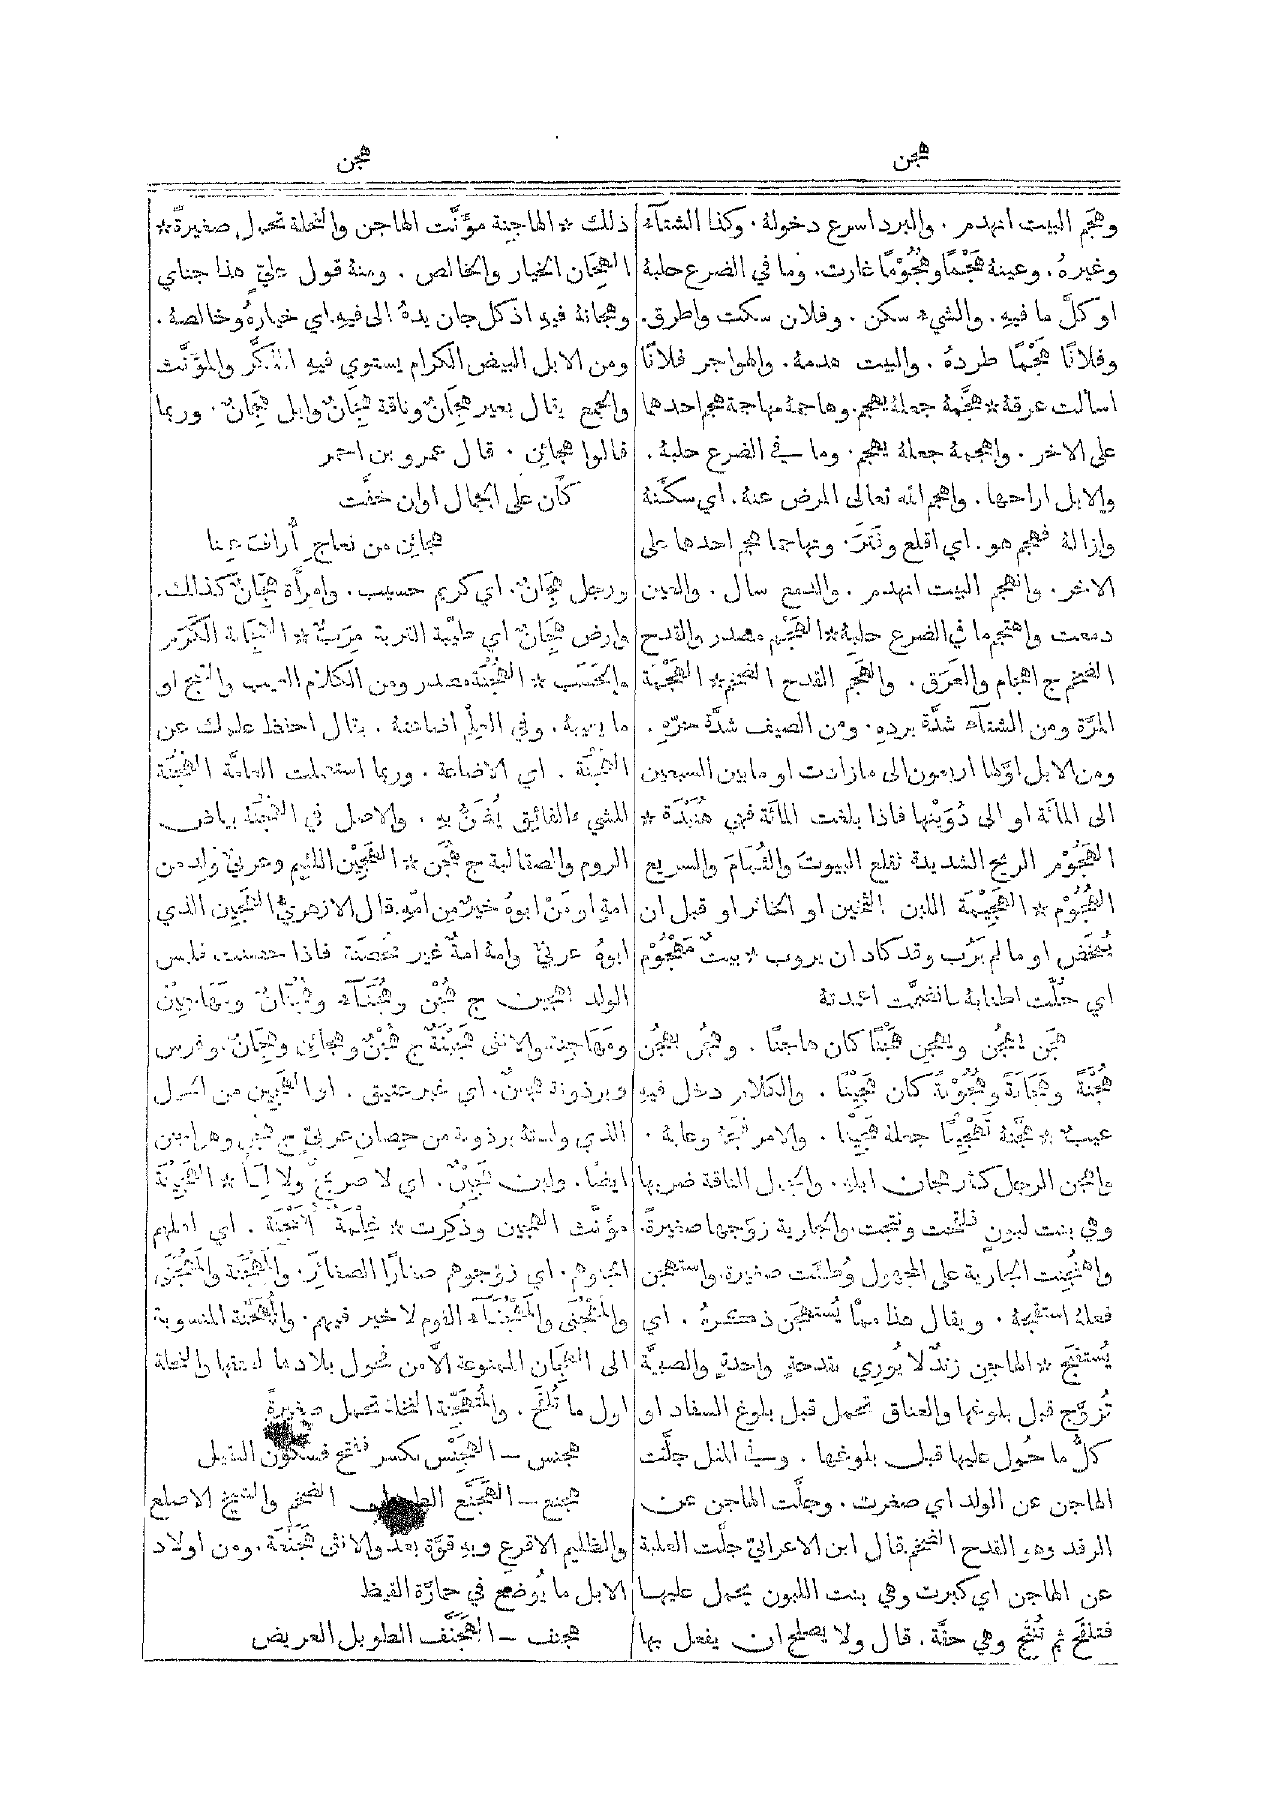 هجن
هجن
وهَجَم البيت انهدم ٠ والبرد اسرع دخولهُ ٠ وكذا الشتآء
وغيرهُ ٠ وعينهُ هَجْمًا وهُجُوْمًا غارت ٠ وما في الضرع حلبهُ
او كلَّ ما فيهِ ٠ والشيء سكن ٠ وفلان سكت واطرق ٠
وفلانًا هَجْمًا طردهُ ٠ والبيت هدمهُ ٠ والهواجر فلانًا
اسالت عرقهُ * هجَّمهُ جعلهُ يهجم ٠ وهاجمهُ مهاجمة هجم احدهما
على الاخر ٠ واهجمهُ جعلهُ يهجم ٠ وما في الضرع حلبهُ ٠
والابل اراحها ٠ واهجم الله تعالى المرض عنهُ ٠ اي سكَّنهُ
وازالهُ فهجم هو ٠ اي اقلع وفَتَرَ ٠ وتهاجما هجم احدهما على
الاخر ٠ وانهجم البيت انهدم ٠ والدمع سال ٠ والعين
دمعت واهتجم ما في الضرع حلبهُ * الهَجْم مصدر والقدح
الضخم ج اهجام والعَرَق ٠ والهَجَم القدح الضخم * الهَجْمَة
المرَّة ومن الشتآء شدَّة بردهِ ٠ ومن الصيف شدَّة حرّهِ ٠
ومن الابل اوَّلها اربعون الى ما زادت او ما بين السبعين
الى المائَة او الى دُوَيْنها فاذا بلغت المائَة فهي هُنَيْدَة *
الهَجُوْم الريح الشديدة تقلع البيوت والثُمَام والسريع
الهُجُوْم * الهَجِيْمَة اللبن الثخين او الخاثر او قبل ان
يُمْخَض او ما لم يَرُب وقد كاد ان يروب * بيتٌ مَهْجُوْم
اي حُلَّت اطنابهُ فانضمَّت اعمدتهُ
هجَن يهجُن ويهجِن هَجْنًا كان هاجنًا ٠ وهجُن يهجُن
هُجْنَةً وهَجَانَةً وهُجُوْنَةً كان هَجِيْنًا ٠ والكلام دخل فيهِ
عيب * هجَّنهُ تَهْجِينًا جعلهُ هَجِيْنًا ٠ والامر قبَّحهُ وعابهُ ٠
واهجن الرجل كثر هجان ابلهِ ٠ والجمل الناقة ضربها
وهي بنت لبونٍ فلقحت ونتجت ٠ والجارية زوَّجها صغيرةً ٠
واهتُجِنت الجارية على المجهول وُطِئَت صغيرة ٠ واستهجن
فعلهُ استقبحهُ ٠ ويقال هذا ممَّا يُستهجَن ذكرهُ ٠ اي
يُستقبَح * الهاجن زندٌ لا يُوْري بقدحةٍ واحدةٍ والصبيَّة
تُزوَّج قبل بلوغها والعناق تحمل قبل بلوغ السفاد او
كلُّ ما حُمِل عليها قبل بلوغها ٠ وفي المثل جلَّت
الهاجن عن الولد اي صغرت ٠ وجلَّت الهاجن عن
الرفد وهو القدح الضخم قال ابن الاعرابيّ جلَّت العلبة
عن الهاجن اي كبرت وهي بنت اللبون يحمل عليها
فتلقح ثم تُنتَج وهي حقَّة ٠ قال ولا يصلح ان يفعل بها
ذلك * الهاجنة مؤنَّث الهاجن والنخلة تحمل صغيرةً *
الهِجَان الخيار والخالص ٠ ومنهُ قول عليٍّ هذا جناي
وهجانهُ فيهِ اذ كل جانٍ يدهُ الى فيهِ ٠ اي خيارهُ وخالصهُ ٠
ومن الابل البيض الكرام يستوي فيهِ المذكَّر والمؤنَّث
والجمع يقال بعير هِجَانٌ وناقة هِجَانٌ وابل هِجَانٌ ٠ وربما
قالوا هجائن ٠ قال عمرو بن احمر
كأَن على الجمال اوان خفَّت
هجائن من نعاج أُراق عِينا
ورجل هِجَانٌ ٠ اي كريم حسيب ٠ وامرأَة هِجَانٌ كذلك ٠
وارض هِجَانٌ اي طيّبة التربة مَرَبٌّ * الهَجَانَة الكَرَم
والحَسَب * الهُجْنَة مصدر ومن الكلام العيب والقبح او
ما يعيبهُ ٠ وفي العلم اضاعتهُ ٠ يقال احفظ علمك عن
الهُجْنَة ٠ اي الاضاعة ٠ وربما استعملت العامَّة الهُجْنَة
للشيء الفائق يُفتَن بهِ ٠ والاصل في الهُجْنَة بياض
الروم والصقالبة ج هُجَن * الهَجِيْن اللئيم وعربيّ وُلِد من
امةٍ او مَنْ ابوهُ خيرٌ من امّهِ ٠ قال الازهريُّ الهَجِين الذي
ابوهُ عربيّ وامهُ امةٌ غير محصَنة فاذا حصنت فليس
الولد بهجين ج هُجْن وهُجَنَآء وهُجْنَانٌ ومَهَاجِيْن
ومَهَاجِنة والانثى هَجِيْنَةٌ ج هُجْنٌ وهجائن وهِجَانٌ ٠ وفرس
وبرذونة هجينٌ ٠ اي غير عتيق ٠ او الهَجِين من الخيل
الذي ولدتهُ برذونة من حصان عربيّ ج هُجُن وهواجن
ايضًا ٠ ولبن هَجِيْنٌ ٠ اي لا صريحٌ ولا لِبَأ * الهَجِيْنَة
مؤنَّث الهجين وذُكِرت * غِلْمَةٌ أُهَيْجِنَة ٠ اي اهلهم
اهجنوهم ٠ اي زوَّجوهم صغارًا الصغائرَ ٠ والمَهْجَنَة والمَهْجَنَى
والمَهْجُنَى والمَهْجُنَآء القوم لا خير فيهم ٠ والمُهَجَّنَة المنسوبة
الى الهِجَان الممنوعة الَّا من فحول بلادها لعتقها والنخلة
اول ما تُلقَح ٠ والمُتَهَجِّنة النخلة تحمل صغيرةً
هجنس – الهِجَنْس بكسر ففتح فسكون الثقيل
هجنع – الهَجَنَّع الطويل الضخم والشيخ الاصلع
والظليم الاقرع وبهِ قوَّة بعدُ والانثى هَجَنَّعة ٠ ومن اولاد
الابل ما يُوضَع في حمارَّة القيظ
هجنف – الهَجَنَّف الطويل العريض